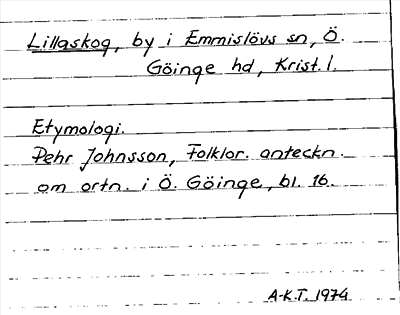 Lillaskog, by i Emmislövs sn, Ö.
Göinge hd, Krist. l.
Etymologi.
Pehr Johnsson, Folklor. anteckn.
om ortn. i Ö. Göinge, bl. 16.
A-K.T. 1974